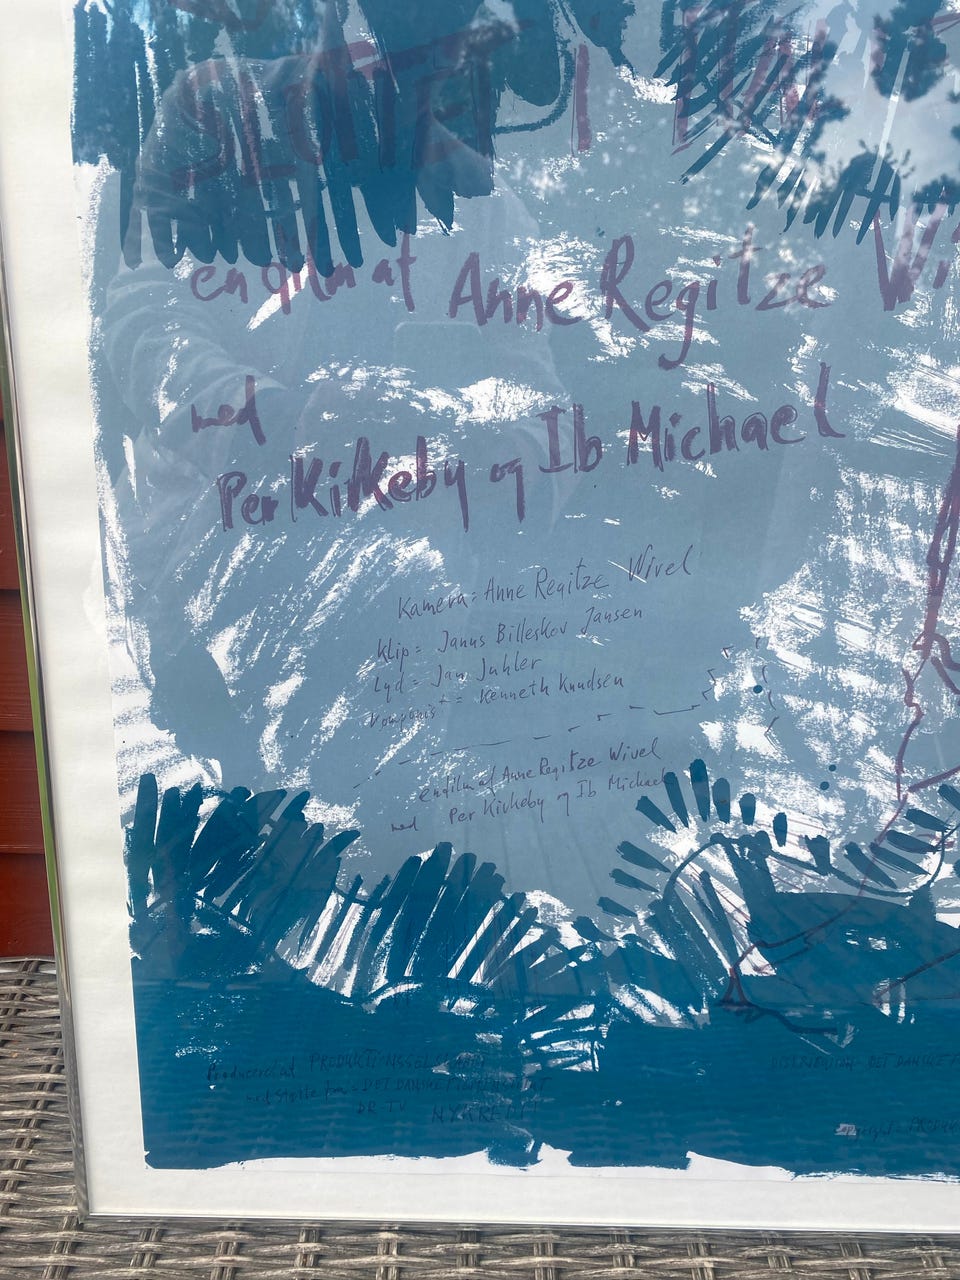 SLOTTET I
en film af Anne Regitze Wi
med
Per Kirkeby og Ib Michael
Kamera: Anne Regitze Wivel
Klip: Janus Billeskov Jansen
Lyd: Jan Juhler
Komponist: Kenneth Knudsen
en film af Anne Regitze Wivel
med Per Kirkeby og Ib Michael
Produceret af PRODUKTIONSSELSKABET
med støtte fra: DET DANSKE FILMINSTITUT
DR TV NYKREDIT
DISTRIBUTION: DET DANSKE F
Copyright: PRODUK